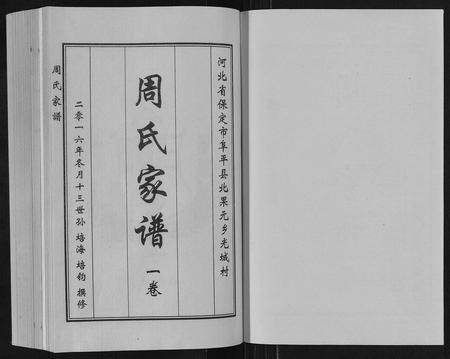 河北省保定市阜平县北果元乡光城村
周氏家谱
一卷
二零一六年冬月十三世孙 培海 培钧 撰修
周氏家谱